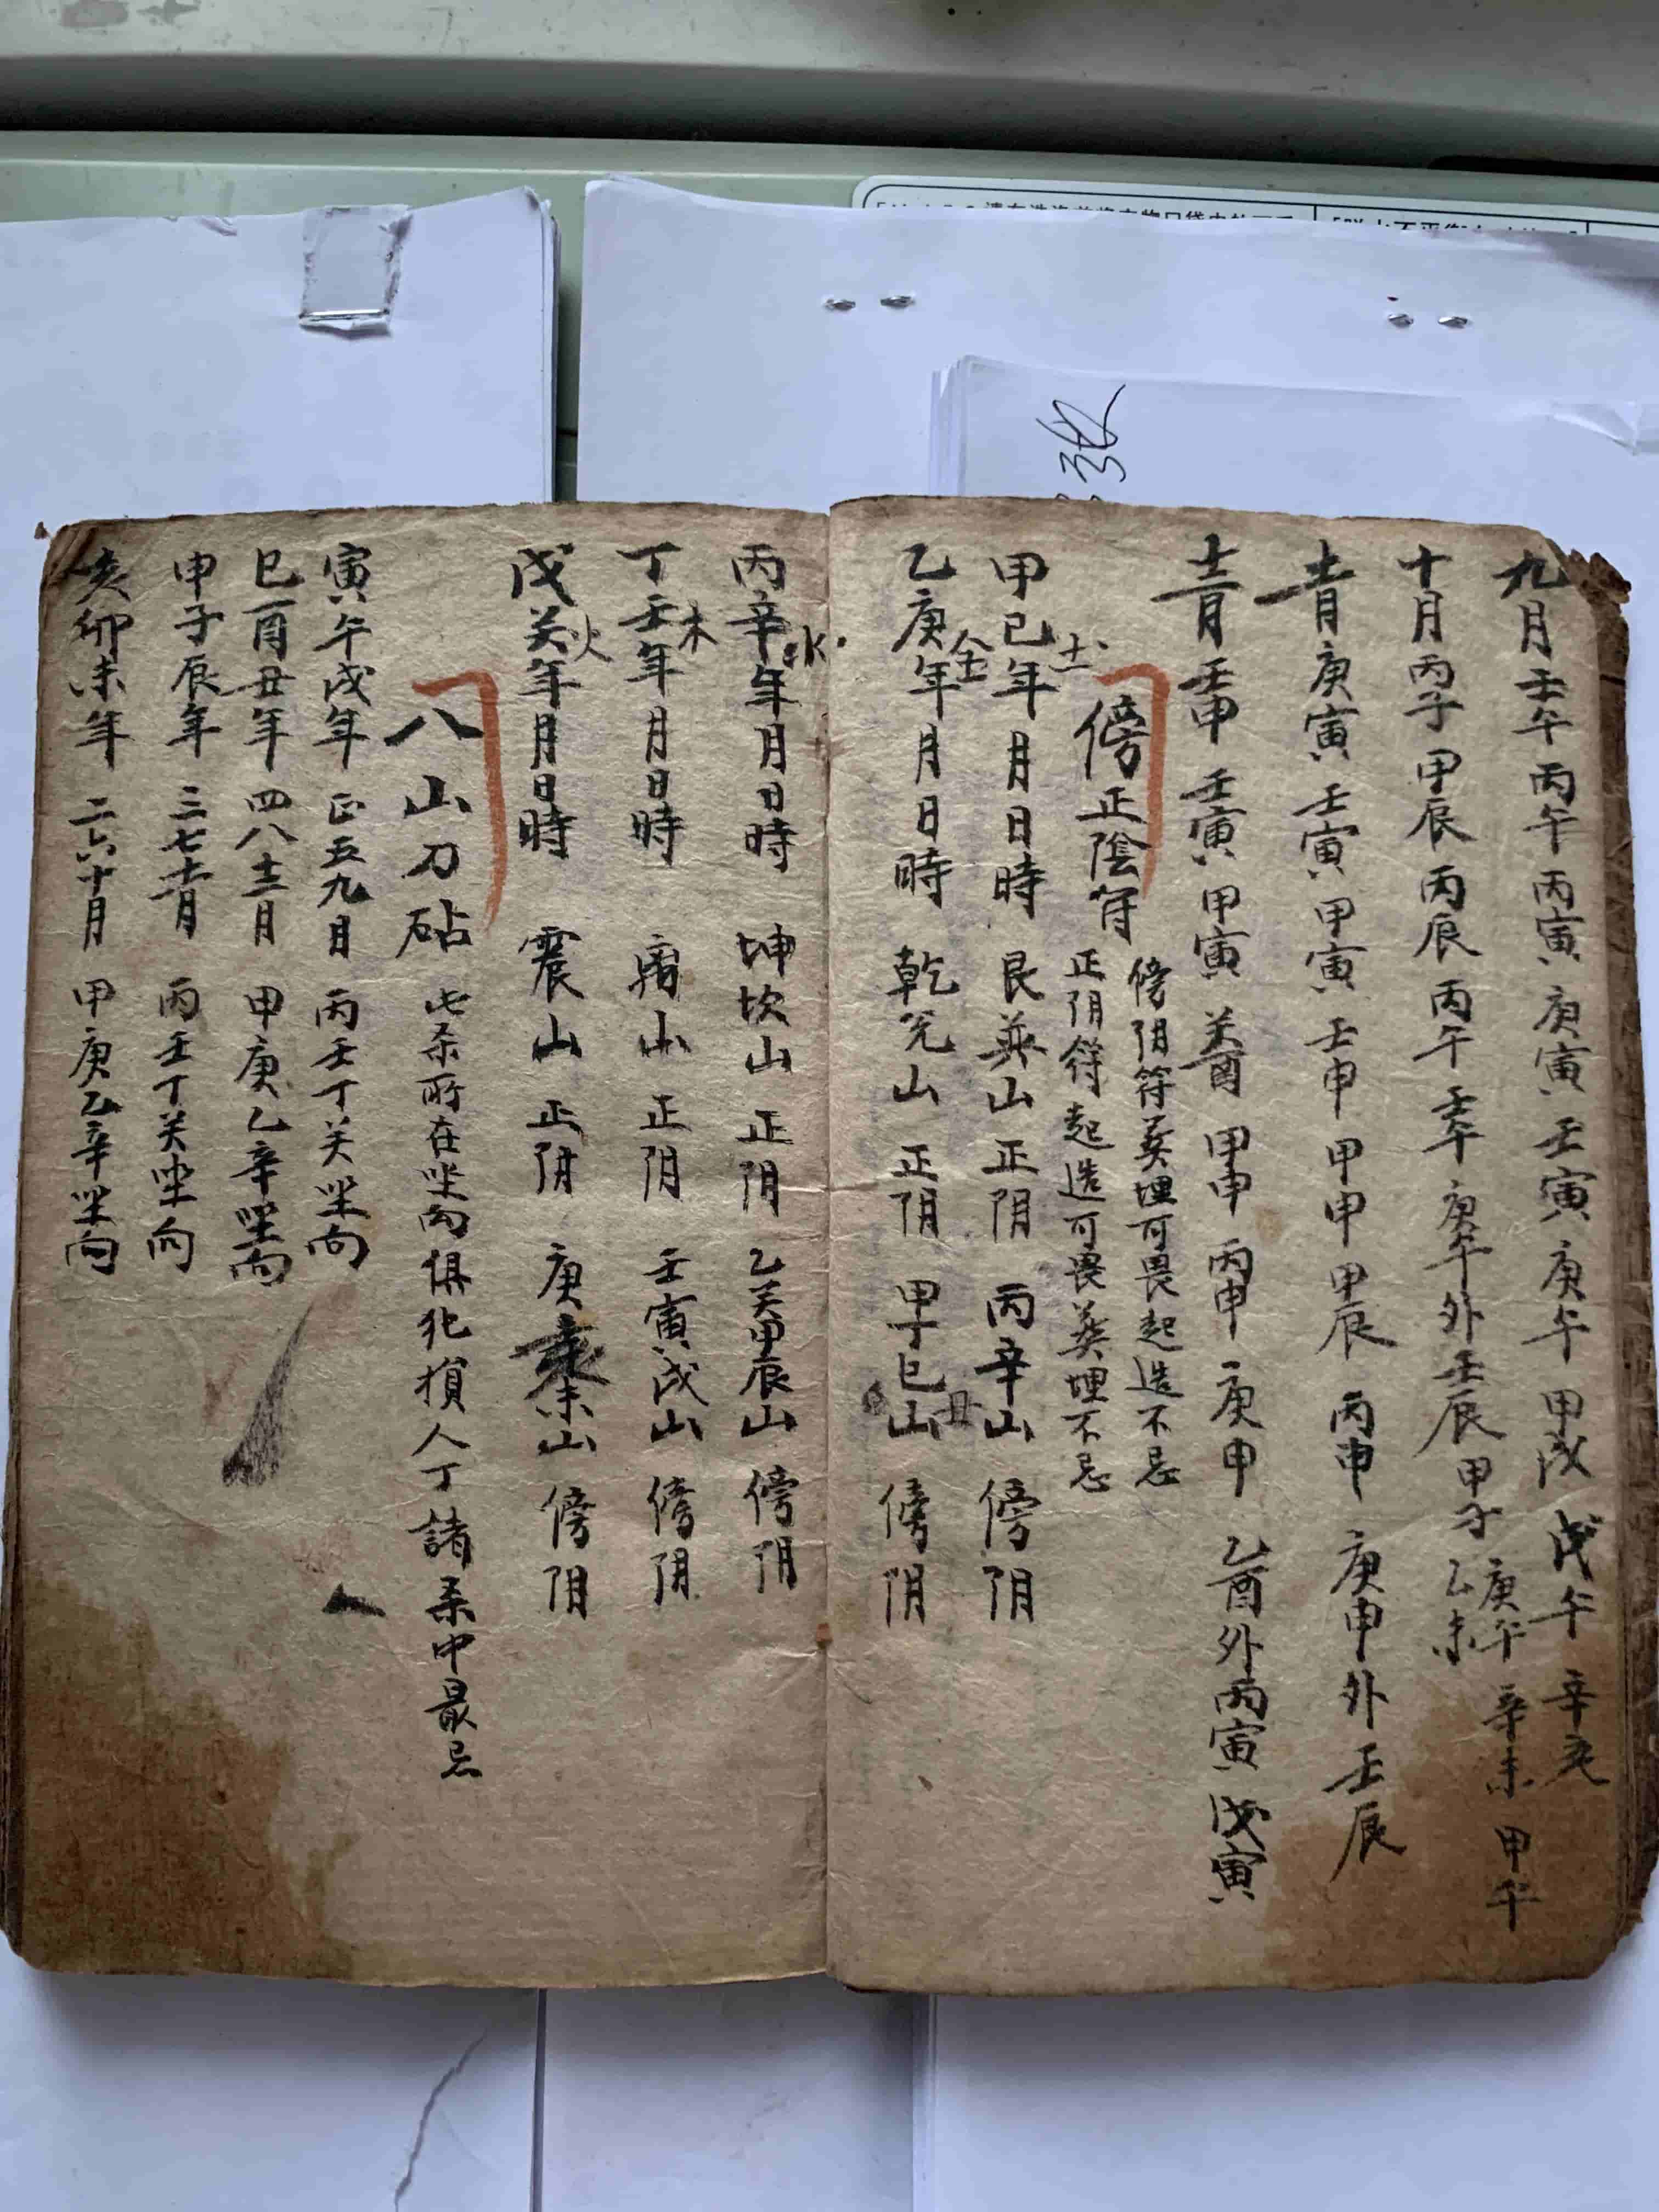 九月壬午丙午丙寅庚寅壬寅庚午甲戌戊午辛亥
十月丙子甲辰丙辰丙午壬午庚午外壬辰甲子庚午辛未甲午
乙未
十一月庚寅壬寅甲寅壬申甲申甲辰丙申庚申外壬辰
十二月壬申壬寅甲寅癸酉甲申丙申庚申乙酉外丙寅戊寅
傍正陰符
傍阴符葬埋可畏起造不忌
正阴符起造可畏葬埋不忌
土
甲己年月日時艮巽山正阴丙辛山傍阴
金
乙庚年月日時乾兑山正阴甲丁巳山傍阴
丑
水
丙辛年月日時坤坎山正阴乙癸甲辰山傍阴
木
丁壬年月日時离山正阴壬寅戌山傍阴
火
戊癸年月日時震山正阴庚亥未山傍阴
八山刀砧此杀所在坐向俱犯損人丁諸杀中最忌
寅午戌年正五九月丙壬丁癸坐向
巳酉丑年四八十二月甲庚乙辛坐向
申子辰年三七十一月丙壬丁癸坐向
亥卯未年二六十月甲庚乙辛坐向